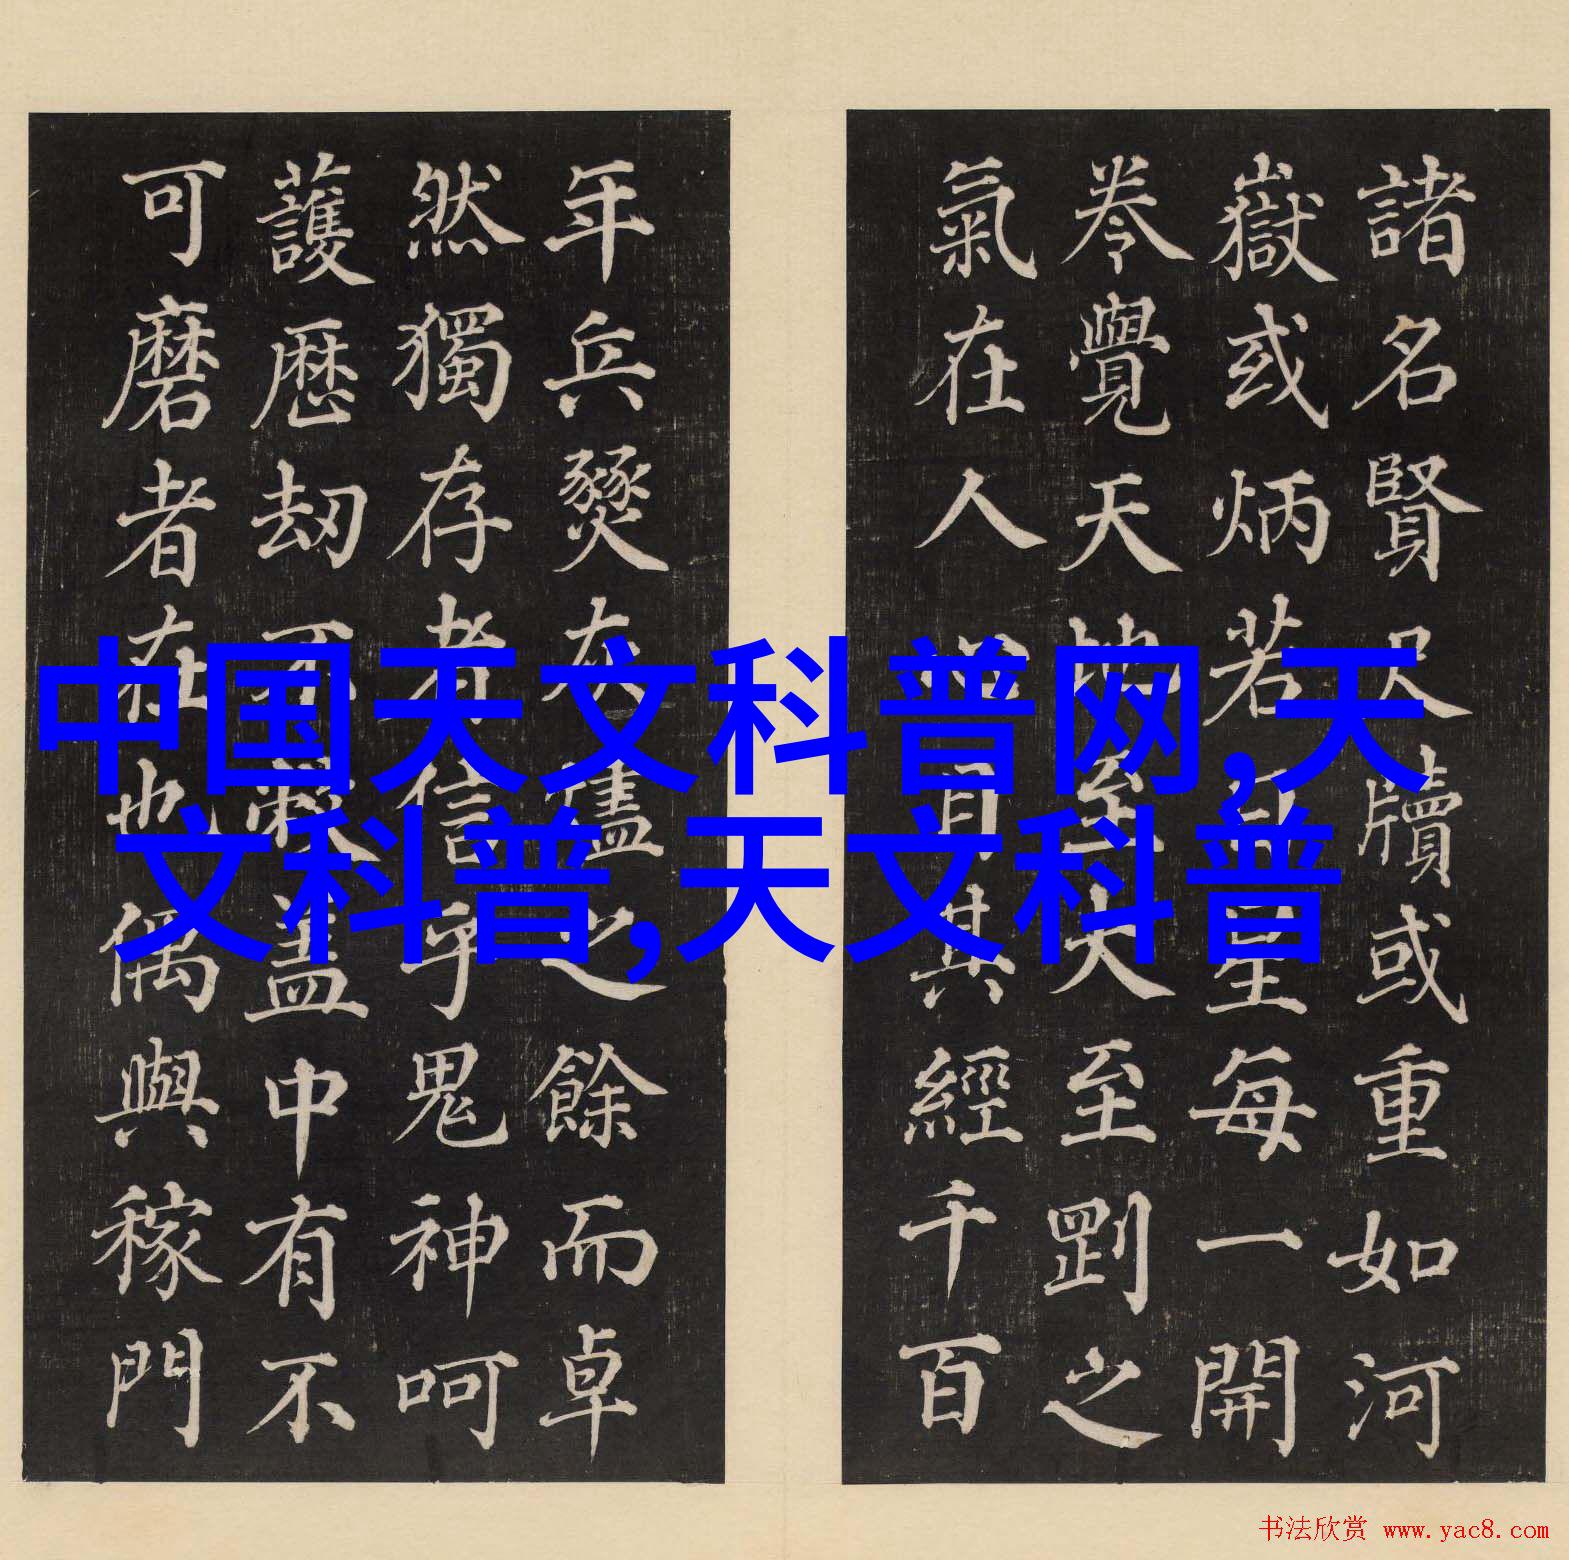 諸名賢尺牘或重如河
嶽或炳若日星每一開
卷覺天地至大至剛之
氣在人心目其經千百
年兵燹灰燼之餘而卓
然獨存者信乎鬼神呵
護厯刼不敝蓋中有不
可磨者在也偶與稼門
中国天文科普网,天
文科普,天文科普
书法欣赏 www.yac8.com